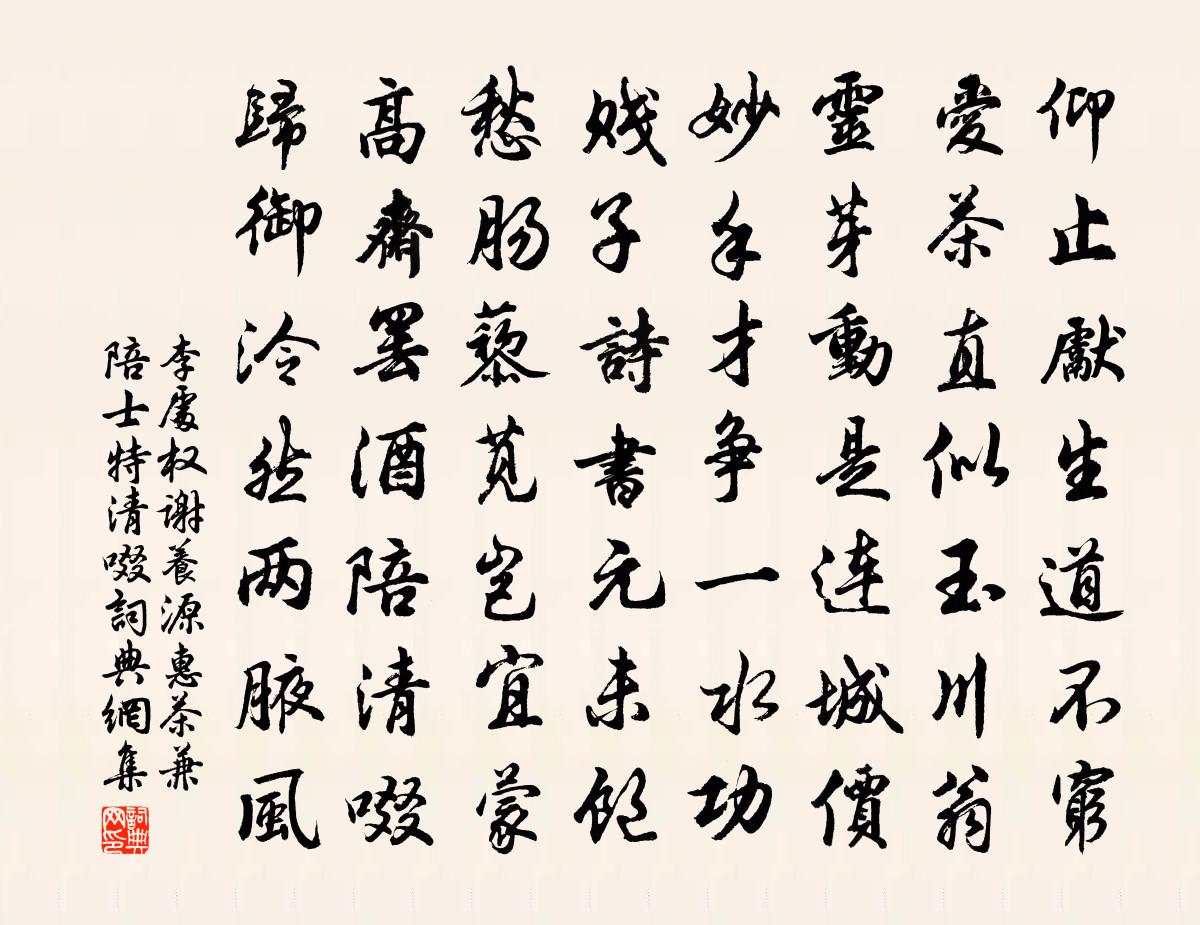 仰止獻生道不窮
愛茶直似玉川翁
靈芽動是連城價
妙手才争一水功
賤子詩書元未飽
愁腸藜莧豈宜蒙
高齋罢酒陪清啜
歸御泠然两腋風
李處权謝養源惠茶兼
陪士特清啜詞典網集
詞典网印